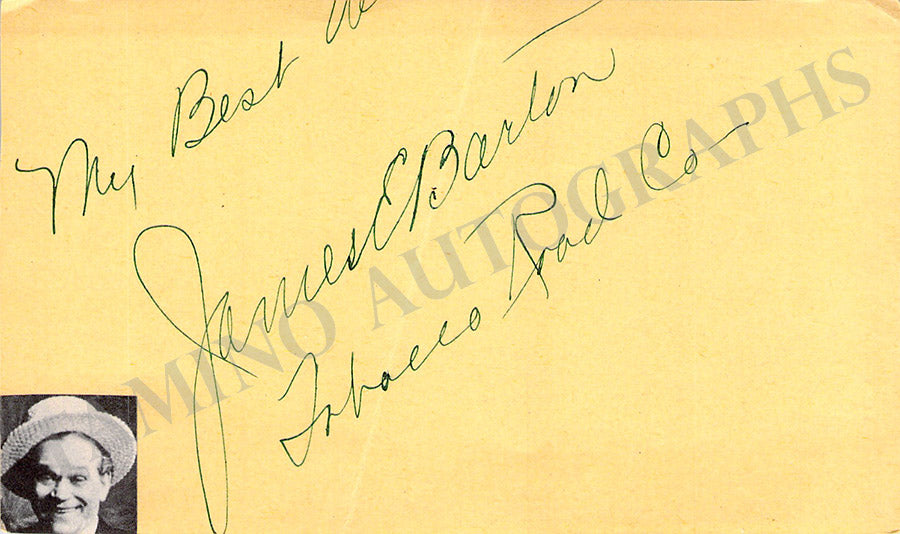 My Best
James E Barton
Tobacco Road Co
MINO AUTOGRAPHS